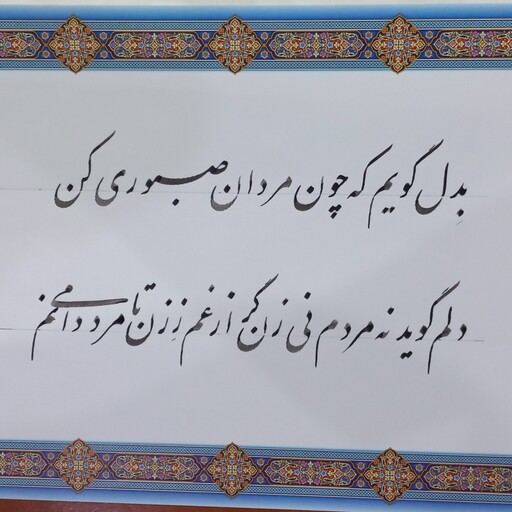 بدِل گویم که چون مردان صبوری کن
دلم گوید نه مردم نی زن گر از غم زِ زن تا مرد دامی‌نم